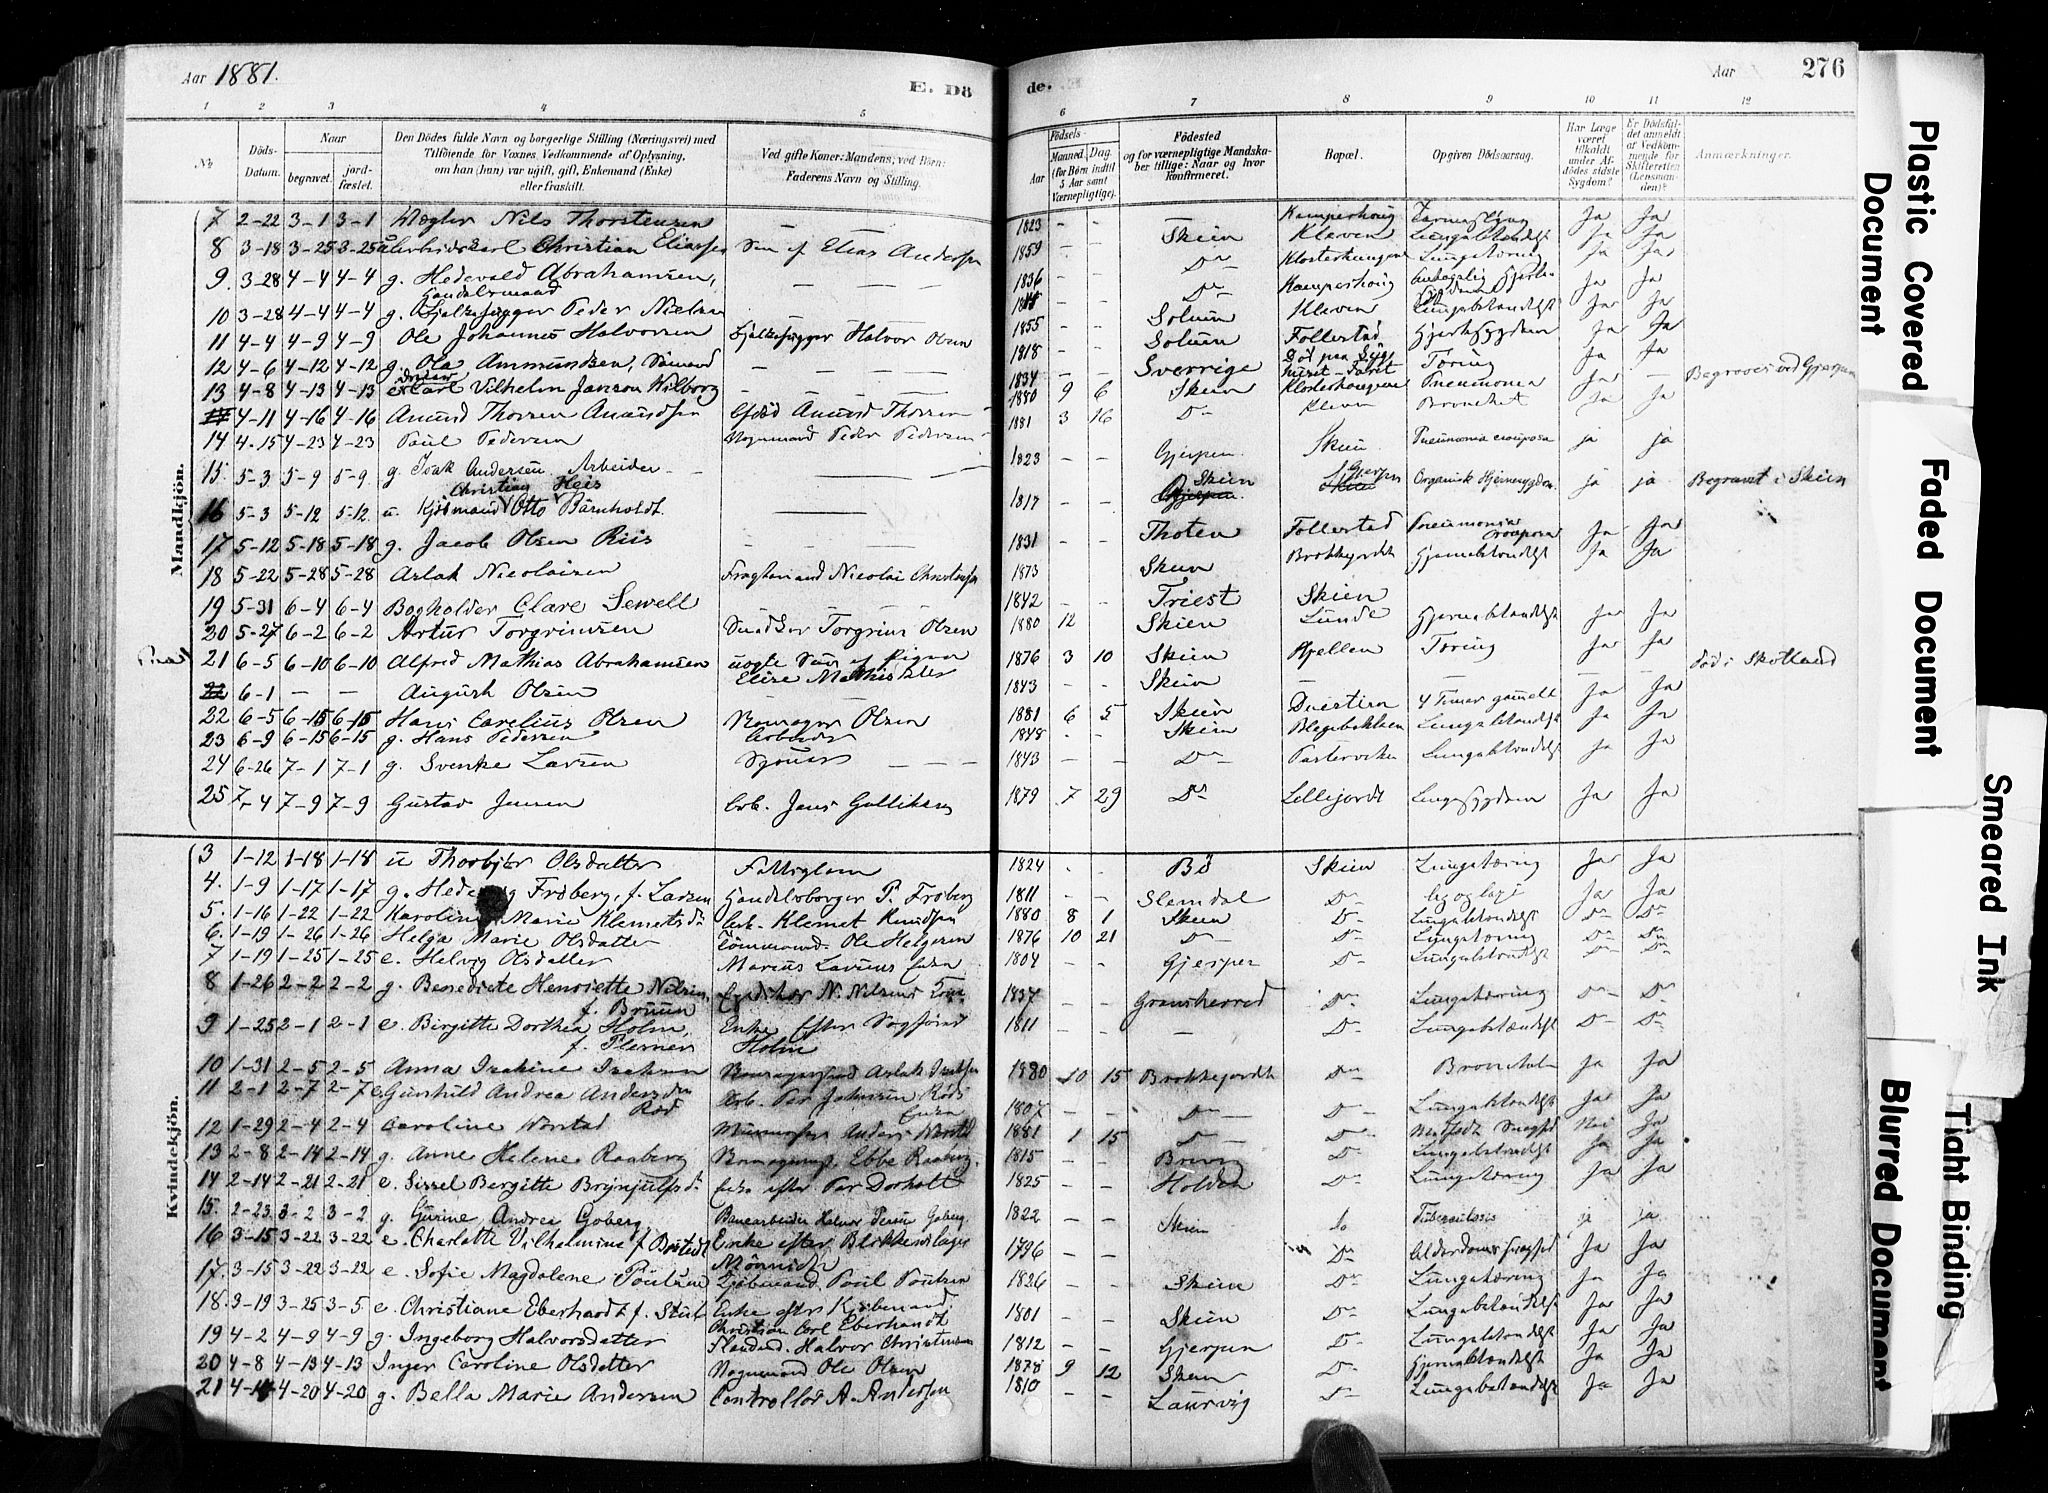 Aar 1881.
E. Dö
de.
Aar
276
1 2 3 4 5 6 7 8 9 10 11 12
No
Döds-Datum.
Naar
begravet.
jord-fæstet.
Den Dödes fulde Navn og borgerlige Stilling (Næringsvei) med
Tilföiende for Voxnes Vedkommende af Oplysning,
om han (hun) var ugift, gift, Enkemand (Enke)
eller fraskilt.
Ved gifte Koner: Mandens, ved Börn:
Faderens Navn og Stilling.
Födsels-
Aar
Maaned. Dag.
(for Börn indtil
5 Aar samt
Værnepligtige).
Födested
og for værnepligtige Mandska-
ber tillige: Naar og hvor
konfirmeret.
Bopæl.
Opgiven Dödsaarsag.
Har Læge
været
tilkaldt
under Af-
dödes sidste
Sygdom?
Er Dödsfal-
det anmeldt
af Vedkom-
mende for
Skifteretten
(Lensman-
den)?
Anmærkninger.
Mandkjön.
7 2-22 3-1 3-1 Nils Thorstensen — 1823 - - Kamperhoug Ja Ja
8 3-18 3-25 3-25 Arbeidskarl Christian Eliassen Søn af Elias Andersen 1859 - - Skien Kleven Lungebetændelse Ja Ja
9. 3-28 4-4 4-4 g. Hedevald Abrahamsen, — 1836 - - Do Klosterhougen Lungetæring Ja Ja
Handelsmand
10 3-28 4-4 4-4 g. Peder Nielsen Do Kamperhoug Ja Ja
11 4-4 4-9 4-9 Ole Johannes Halvorsen Halvor Olsen 1855 - - Solum Kleven Lungebetændelse Ja Ja
12 4-6 4-12 4-12 g. Ola Ammundsen, Sömand — 1818 - - Solum Follestad Hjertesygdom Ja Ja
13 4-8 4-13 4-13 Carl Vilhelm Janson Wilborg — 1834 Sverrige Död paa Tæring Ja Ja Begraves ved Gjerpen
4-11 4-16 4-16 Amund Thorsen Amundsen Amund Thorsen 1880 9 6 Skien Klosterhougen Pneumonia Ja —
14 4-15 4-23 4-23 Paul Pedersen Vognmand Peder Pedersen 1881 3 16 Do Kleven Bronchit Ja Ja
15. 5-3 5-9 5-9 g. Isak Andersen. Arbeider — 1823 Gjerpen Skien Pneumonia crouposa ja ja
Christian Heis
16 5-3 5-12 5-12 u. Kjöbmand Otto Barnholdt — 1817 Skien Gjerpen Organisk Hjernesygdom ja ja Begravet i Skien
17 5-12 5-18 5-18 g. Jacob Olsen Riis — 1831 - - Thoten Follestad Pneumonia crouposa Ja Ja
18 5-22 5-28 5-28 Aslak Nicolaisen Nicolai Christensen 1873 Skien Brekkejordet Hjernebetændelse Ja Ja
19 5-31 6-4 6-4 Bogholder Clare Sewell — 1842 - - Triest Skien
20 5-27 6-2 6-2 Artur Torgrimsen Torgrim Olsen 1880 12 Skien Lunde Hjernebetændelse Ja Ja
21 6-5 6-10 6-10 Alfred Mathias Abrahamsen uægte Søn af Pigen 1876 3 10 Skien Hjellen Tæring Ja Ja
Elise Mathisdatter
22 6-1 — — August Olsen 1843 - - Skien — — — — Död i Skotland
22 6-5 6-15 6-15 Hans Carelius Olsen Olsen 1881 6 5 Skien 4 Timer gammelt Ja Ja
23 6-9 6-15 6-15 g. Hans Pedersen Arbeider 1848 - - Skien Blegebakken Lungebetændelse Ja Ja
24 6-26 7-1 7-1 g. Svenke Larsen — 1843 - - Do Lungebetændelse Ja Ja
25 7-4 7-9 7-9 Gustav Jensen Arb. Jens Gulliksen 1879 7 29 Do Lillejordet Lungesygdom Ja Ja
Kvindekjön.
3 1-12 1-18 1-18 u Thorbjør Olsdatter Fattiglem 1824 - - Bö Skien Lungetæring Ja Ja
4. 1-9 1-17 1-17 g. Hedevig Fröberg, f. Larsen Handelsborger P. Fröberg 1811 - - Slemdal Do Ja Ja
5. 1-16 1-22 1-22 Karoline Marie Klemetsdr Arb. Klemet Knudsen 1880 8 1 Skien Do Lungebetændelse Do Do
6. 1-19 1-26 1-26 Helga Marie Olsdatter Tømmermd. Ole Helgesen 1876 10 21 Do Do Lungetæring Do Do
7 1-19 1-25 1-25 e. Helvig Olsdatter Marius Larsens Enke 1804 - - Gjerpen Do Lungebetændelse Do Do
8 1-26 2-2 2-2 g. Benedicte Henriette Nilsen, N. Nilsens Kone 1837 - - Gransherred Do Lungetæring Do Do
f. Bruun
9 1-25 2-1 2-1 e. Birgitte Dorthea Holm, Enke Efter Sogförer 1811 - - — Do Lungebetændelse Do Do
f. Plesner Holm
10 1-31 2-5 2-5 Anna Isakine Isaksen Aslak Isaksen 1880 10 15 Brekkejordet Do Bronchit Ja Ja
11 2-1 2-7 2-7 e. Gunhild Andrea Andersdr Arb. Per Johnsen Röds 1807 - - Do Do Lungebetændelse Ja Ja
Röd Enke
12 1-29 2-4 2-4 Caroline Wærstad Anders Wærstad 1881 1 15 Do Do Nei Ja
13 2-8 2-14 2-14 g. Anne Helene Raaberg Ebbe Raaberg 1815 - - Do Lungebetændelse Ja Ja
14 2-14 2-21 2-21 e. Sissel Bergitte Brynjulfsd Enke efter Per Dorholt 1825 - - Holden Do Lungetæring Ja Ja
15. 2-23 3-2 3-2 g. Gurine Andrea Goberg, Banearbeider Halvor Goberg 1822 - - Skien do Tuberculosis ja ja
16 3-15 3-22 3-22 e. Charlotte Vilhelmine f. Enke efter 1796 Do Alderdomssvaghed Ja Ja
Mönnich
17. 3-15 3-22 3-22 e Sofie Magdalene Poulsen Kjöbmand Poul Poulsen 1826 - - Skien Do Lungetæring Ja Ja
18. 3-19 3-25 3-5 e. Christiane Eberhardt f. Stub Enke eftr Kjöbmand 1801 - - Skien Do Lungebetændelse Ja Ja
Christian Carl Eberhardt
19 4-2 4-9 4-9 g. Ingeborg Halvorsdatter Halvor Christensen 1812 - - Gjerpen Do Lungebetændelse Ja Ja
20 4-8 4-13 4-13 Inger Caroline Olsdatter Vognmand Ole Olsen 1878 9 12 Skien Do Hjernebetændelse Ja Ja
21 4-14 4-20 4-20 g. Bella Marie Andersen Controllör A. Andersen 1810 - - Laurvig Do Lungebetændelse Ja Ja
Plastic Covered Document
Faded Document
Smeared Ink
Tight Binding
Blurred Document